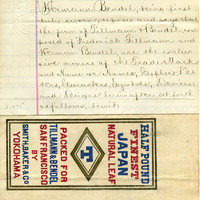 Hermann Bendel, being first
duly sworn, deposes and says that
the firm of Tillmann & Bendel, com-
posed of Frederick Tillmann and
Herman Bendel, are the
sive owners of the Trade Mark
and Name or Names,
ters, Characters,
and Designs hereinafter set forth
as follows, to wit:
HALF POUND
FINEST
JAPAN
NATURAL LEAF
T
PACKED FOR
TILLMANN & BENDEL
SAN FRANCISCO
BY
SMITH, BAKER & CO.
YOKOHAMA